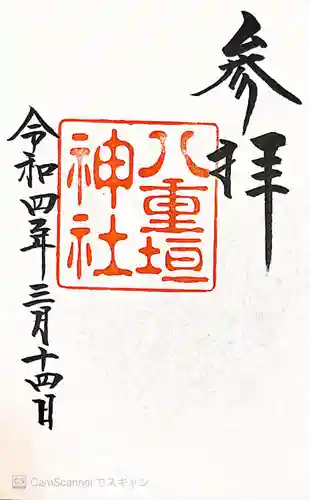 参拝
八重垣
神社
令和四年三月十四日
CS CamScanner でスキャン